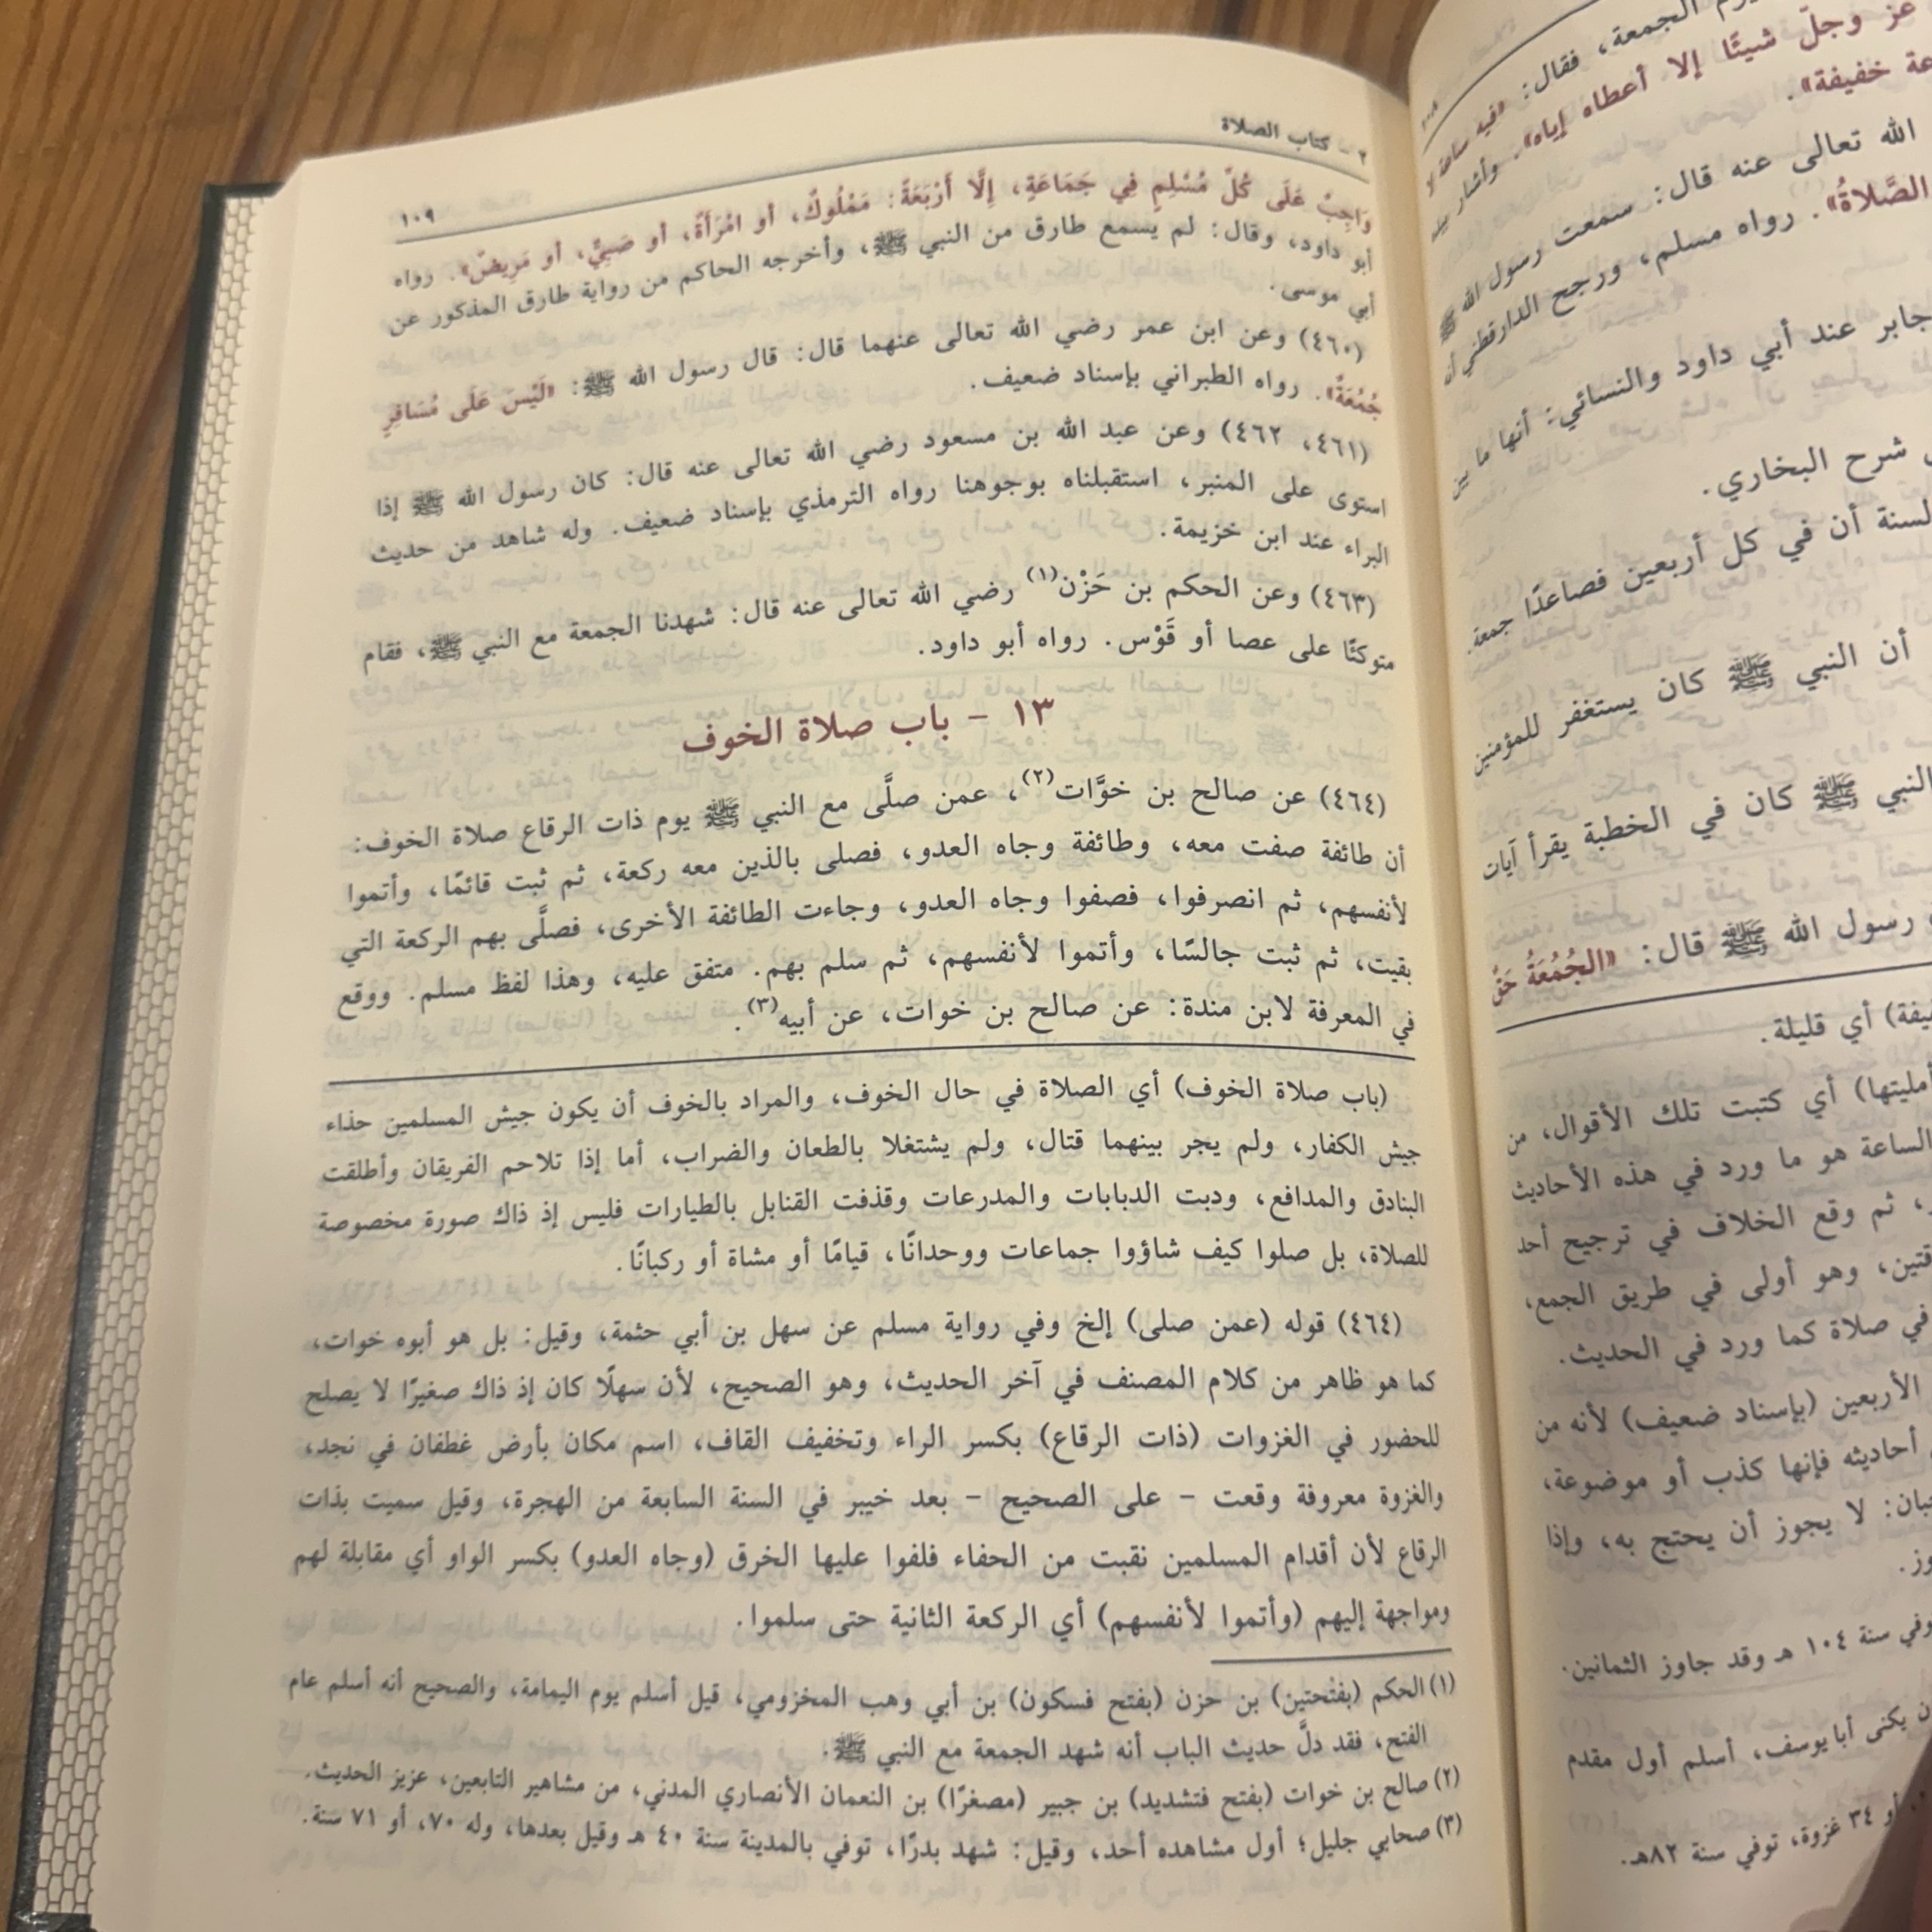 ٢ - كتاب الصلاة
١٠٩
وَاجِبٌ عَلَى كُلِّ مُسْلِمٍ فِي جَمَاعَةٍ، إِلَّا أَرْبَعَةً: مَمْلُوكٌ، أو امْرَأَةٌ، أو صَبِيٌّ، أو مَرِيضٌ». رواه
أبو داود، وقال: لم يسمع طارق من النبي ﷺ، وأخرجه الحاكم من رواية طارق المذكور عن
أبي موسى.
(٤٦٠) وعن ابن عمر رضي الله تعالى عنهما قال: قال رسول الله ﷺ: «لَيْسَ عَلَى مُسَافِرٍ
جُمُعَةٌ». رواه الطبراني بإسناد ضعيف.
(٤٦١، ٤٦٢) وعن عبد الله بن مسعود رضي الله تعالى عنه قال: كان رسول الله ﷺ إذا
استوى على المنبر، استقبلناه بوجوهنا رواه الترمذي بإسناد ضعيف. وله شاهد من حديث
البراء عند ابن خزيمة.
(٤٦٣) وعن الحكم بن حَزْن(١) رضي الله تعالى عنه قال: شهدنا الجمعة مع النبي ﷺ، فقام
متوكئًا على عصا أو قَوْس. رواه أبو داود.
١٣ - باب صلاة الخوف
(٤٦٤) عن صالح بن خوَّات(٢)، عمن صلَّى مع النبي ﷺ يوم ذات الرقاع صلاة الخوف:
أن طائفة صفت معه، وطائفة وجاه العدو، فصلى بالذين معه ركعة، ثم ثبت قائمًا، وأتموا
لأنفسهم، ثم انصرفوا، فصفوا وجاه العدو، وجاءت الطائفة الأخرى، فصلَّى بهم الركعة التي
بقيت، ثم ثبت جالسًا، وأتموا لأنفسهم، ثم سلم بهم. متفق عليه، وهذا لفظ مسلم. ووقع
في المعرفة لابن مندة: عن صالح بن خوات، عن أبيه(٣).
(باب صلاة الخوف) أي الصلاة في حال الخوف، والمراد بالخوف أن يكون جيش المسلمين حذاء
جيش الكفار، ولم يجر بينهما قتال، ولم يشتغلا بالطعان والضراب، أما إذا تلاحم الفريقان وأطلقت
البنادق والمدافع، ودبت الدبابات والمدرعات وقذفت القنابل بالطيارات فليس إذ ذاك صورة مخصوصة
للصلاة، بل صلوا كيف شاؤوا جماعات ووحدانًا، قيامًا أو مشاة أو ركبانًا.
(٤٦٤) قوله (عمن صلى) إلخ وفي رواية مسلم عن سهل بن أبي حثمة، وقيل: بل هو أبوه خوات،
كما هو ظاهر من كلام المصنف في آخر الحديث، وهو الصحيح، لأن سهلًا كان إذ ذاك صغيرًا لا يصلح
للحضور في الغزوات (ذات الرقاع) بكسر الراء وتخفيف القاف، اسم مكان بأرض غطفان في نجد،
والغزوة معروفة وقعت - على الصحيح - بعد خيبر في السنة السابعة من الهجرة، وقيل سميت بذات
الرقاع لأن أقدام المسلمين نقبت من الحفاء فلفوا عليها الخرق (وجاه العدو) بكسر الواو أي مقابلة لهم
ومواجهة إليهم (وأتموا لأنفسهم) أي الركعة الثانية حتى سلموا.
(١) الحكم (بفتحتين) بن حزن (بفتح فسكون) بن أبي وهب المخزومي، قيل أسلم يوم اليمامة، والصحيح أنه أسلم عام
الفتح، فقد دلَّ حديث الباب أنه شهد الجمعة مع النبي ﷺ.
(٢) صالح بن خوات (بفتح فتشديد) بن جبير (مصغرًا) بن النعمان الأنصاري المدني، من مشاهير التابعين، عزيز الحديث.
(٣) صحابي جليل؛ أول مشاهده أحد، وقيل: شهد بدرًا، توفي بالمدينة سنة ٤٠ هـ وقيل بعدها، وله ٧٠، أو ٧١ سنة.
الجمعة، فقال: «فيه ساعة لا
عز وجلّ شيئًا إلا أعطاه إياه». وأشار بيده
خفيفة».
الله تعالى عنه قال: سمعت رسول الله ﷺ
الصَّلاةُ». رواه مسلم، ورجح الدارقطني أن
جابر عند أبي داود والنسائي: أنها ما بين
شرح البخاري.
السنة أن في كل أربعين فصاعدًا جمعة.
أن النبي ﷺ كان يستغفر للمؤمنين
النبي ﷺ كان في الخطبة يقرأ آيات
رسول الله ﷺ قال: «الجُمُعَةُ حَقٌّ
أي قليلة.
أمليتها) أي كتبت تلك الأقوال، من
الساعة هو ما ورد في هذه الأحاديث
ثم وقع الخلاف في ترجيح أحد
وهو أولى في طريق الجمع،
في صلاة كما ورد في الحديث.
الأربعين (بإسناد ضعيف) لأنه من
أحاديثه فإنها كذب أو موضوعة،
لا يجوز أن يحتج به، وإذا
سنة ١٠٤ هـ وقد جاوز الثمانين.
يكنى أبا يوسف، أسلم أول مقدم
أو ٣٤ غزوة، توفي سنة ٨٢هـ.